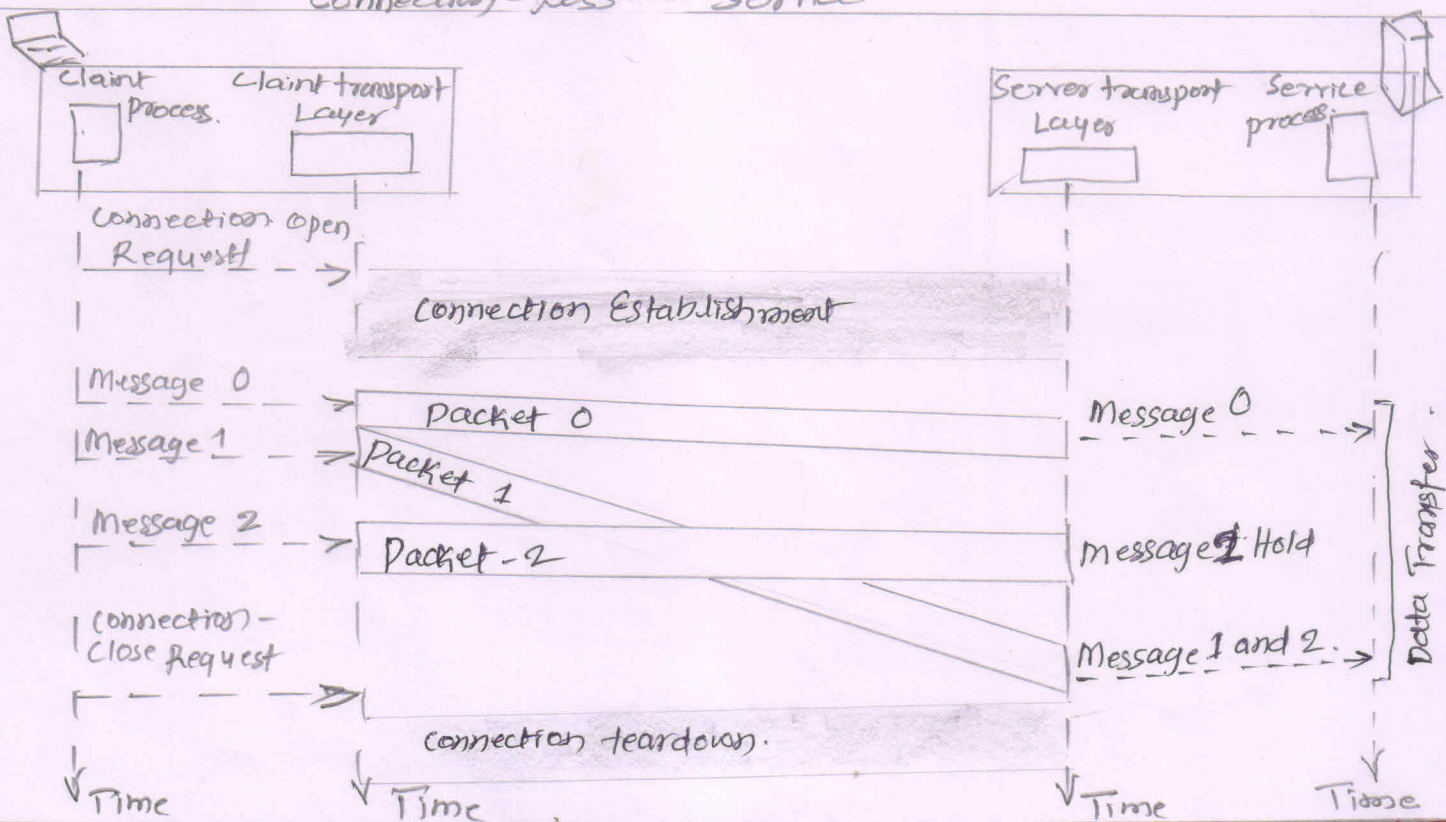 Connection-less Service
Claint process.
Claint transport Layer
Server transport Layer
Service process.
Connection open Request
Connection Establishment
Message 0
Packet 0
Message 0
Message 1
Packet 1
Message 2
Packet-2
Message 1 Hold
Connection-
Close Request
Message 1 and 2.
Data Transfer.
Connection teardown.
Time
Time
Time
Time